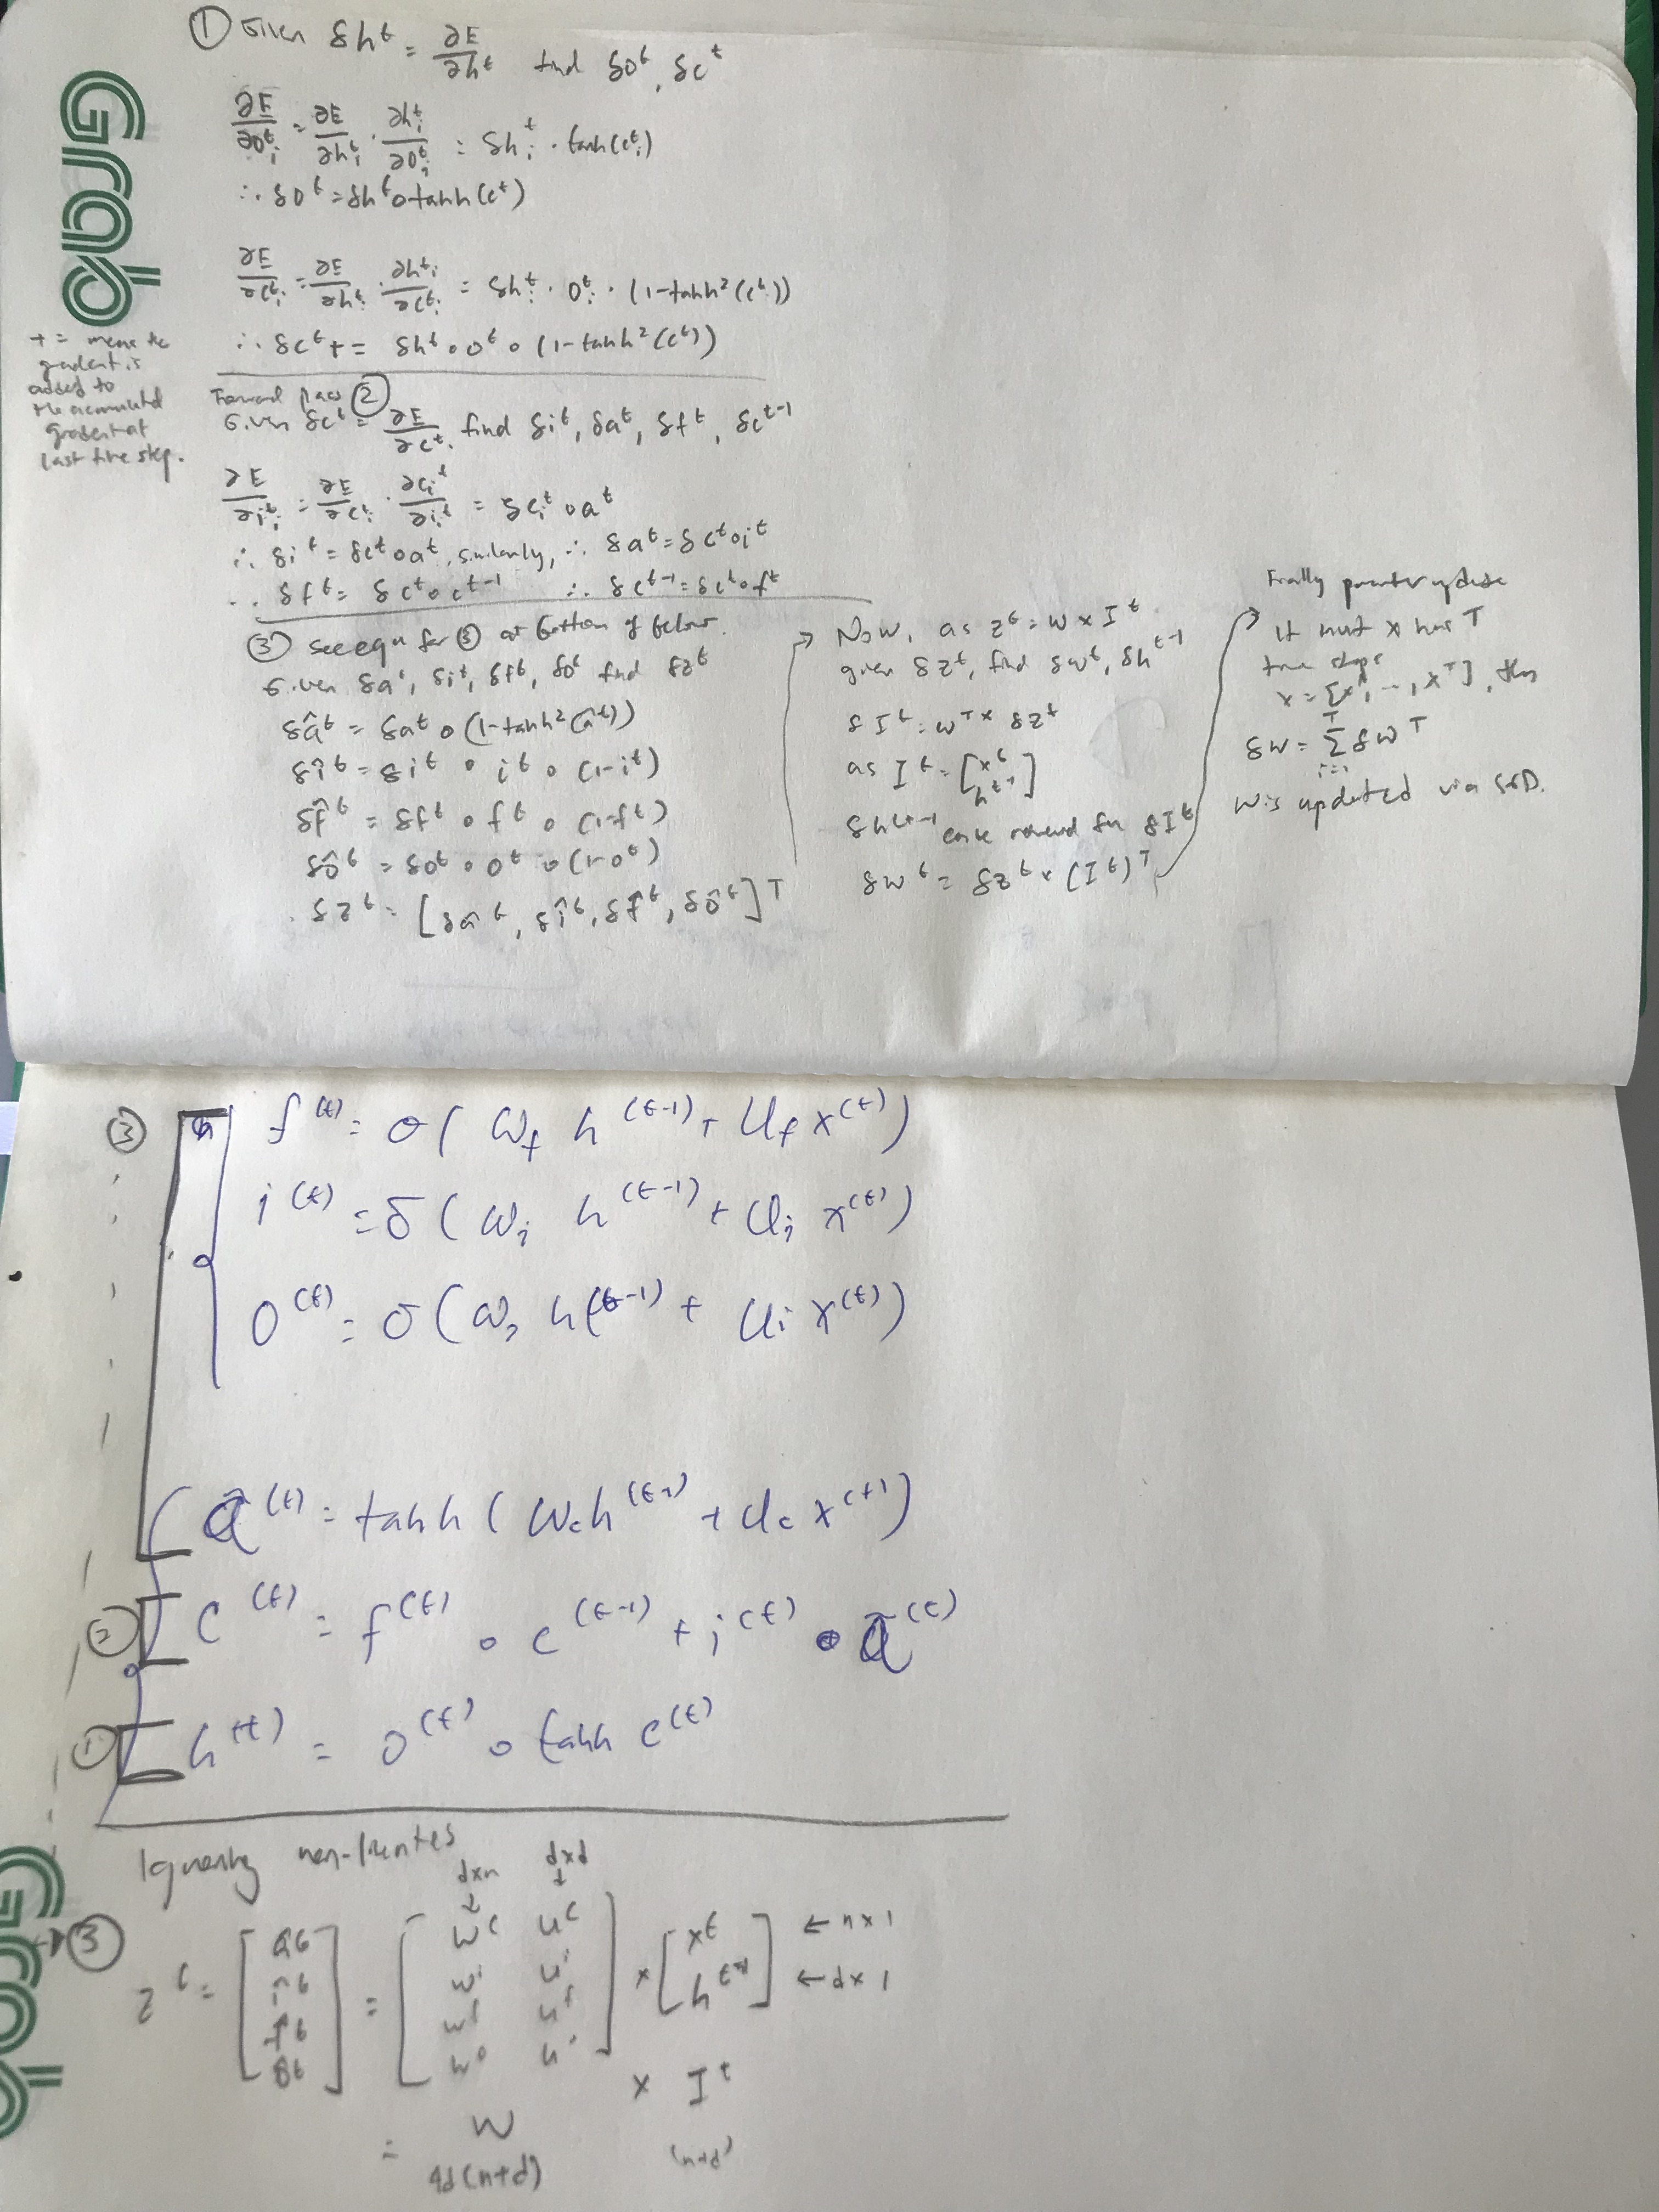 Grab
① Given δh^t = ∂E/∂h^t find δo^t, δc^t
∂E/∂o^t_i = ∂E/∂h^t_i · ∂h^t_i/∂o^t_i = δh^t_i · tanh(c^t_i)
∴ δo^t = δh^t ∘ tanh(c^t)
∂E/∂c^t_i = ∂E/∂h^t_i · ∂h^t_i/∂c^t_i = δh^t_i · o^t_i · (1-tanh²(c^t_i))
∴ δc^t += δh^t ∘ o^t ∘ (1-tanh²(c^t))
+= means the
gradient is
added to
the accumulated
gradient at
last time step.
Forward pass ②
Given δc^t = ∂E/∂c^t, find δi^t, δa^t, δf^t, δc^t-1
∂E/∂i^t_i = ∂E/∂c^t_i · ∂c_i^t/∂i_i^t = δc_i^t ∘ a^t
∴ δi^t = δc^t ∘ a^t, similarly, ∴ δa^t = δc^t ∘ i^t
∴ δf^t = δc^t ∘ c^t-1 ∴ δc^t-1 = δc^t ∘ f^t
③ see eqn for ③ at bottom of below.
Given δa^t, δi^t, δf^t, δo^t find δz^t
δâ^t = δa^t ∘ (1-tanh²(â^t))
δî^t = δi^t ∘ i^t ∘ (1-i^t)
δf̂^t = δf^t ∘ f^t ∘ (1-f^t)
δô^t = δo^t ∘ o^t ∘ (1-o^t)
δz^t = [δâ^t, δî^t, δf̂^t, δô^t]^T
→ Now, as z^t = W × I^t
given δz^t, find δw^t, δh^t-1
δI^t = W^T × δz^t
as I^t = [x^t
h^t-1]
δh^t-1 can be retrieved from δI^t
δw^t = δz^t × (I^t)^T
Finally parameter update
If input x has T
time steps
x = [x^1, ..., x^T], then
δw = Σ^T_i=1 δw^T
W is updated via SGD.
③ f^(t) = σ( W_f h^(t-1) + U_f x^(t))
i^(t) = σ( W_i h^(t-1) + U_i x^(t))
O^(t) = σ( W_o h^(t-1) + U_i x^(t))
ã^(t) = tanh( W_c h^(t-1) + U_c x^(t))
② C^(t) = f^(t) ∘ c^(t-1) + i^(t) ∘ ã^(t)
① h^(t) = o^(t) ∘ tanh c^(t)
Ignoring non-linearites
d×n d×d
↓ ↓
→③ z^t = [â^t = [W^c U^c × [x^t ← n×1
î^t W^i U^i h^t-1] ← d×1
f̂^t W^f U^f
ô^t] W^o U^o]
= W × I^t
4d(n+d) (n+d)
Grab